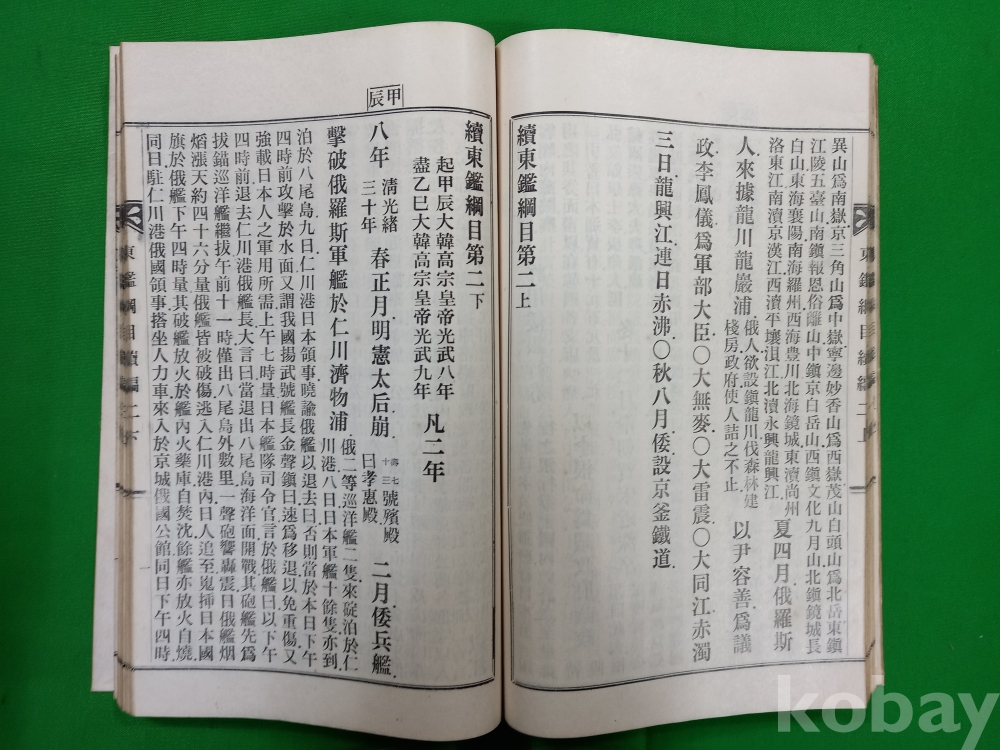 異山爲南嶽京三角山爲中嶽寧邊妙香山爲西嶽茂山白頭山爲北岳東鎭
江陵五臺山南鎭報恩俗離山中鎭京白岳山西鎭文化九月山北鎭鏡城長
白山東海襄陽南海羅州西海豊川北海鏡城東瀆尙州
洛東江南瀆京漢江西瀆平壤浿江北瀆永興龍興江
夏四月俄羅斯
人來據龍川龍巖浦
俄人欲設鎭龍川伐森林建
棧房政府使人詰之不止
以尹容善爲議
政李鳳儀爲軍部大臣○大無麥○大雷震○大同江赤濁
三日龍興江連日赤沸○秋八月倭設京釜鐵道
續東鑑綱目第二上
甲辰
續東鑑綱目第二下
起甲辰大韓高宗皇帝光武八年
盡乙巳大韓高宗皇帝光武九年
凡二年
八年
淸光緒
三十年
春正月明憲太后崩
壽七
十三
號殯殿
曰孝惠殿
二月倭兵艦
擊破俄羅斯軍艦於仁川濟物浦
俄二等巡洋艦二隻來碇泊於仁
川港八日日本軍艦十餘隻亦到
泊於八尾島九日仁川港日本領事曉諭俄艦以退去曰否則當於本日下午
四時前攻擊於水面又謂我國揚武號艦長金聲鎭曰速爲移退以免重傷又
強載日本人之軍用所需上午七時量日本艦隊司令官言於俄艦曰以下午
四時前退去仁川港俄艦長大言曰當退出八尾島海洋面開戰其砲艦先爲
拔錨巡洋艦繼拔午前十一時僅出八尾島外數里一聲砲響轟震日俄艦烟
熖漲天約四十六分量俄艦皆被破傷逃入仁川港內日人追至嵬揷日本國
旗於俄艦下午四時量其破艦放火於艦內火藥庫自焚沈餘艦亦放火自燒
同日駐仁川港俄國領事搭坐人力車來入於京城俄國公館同日下午四時
東鑑綱目續編 二下
kobay